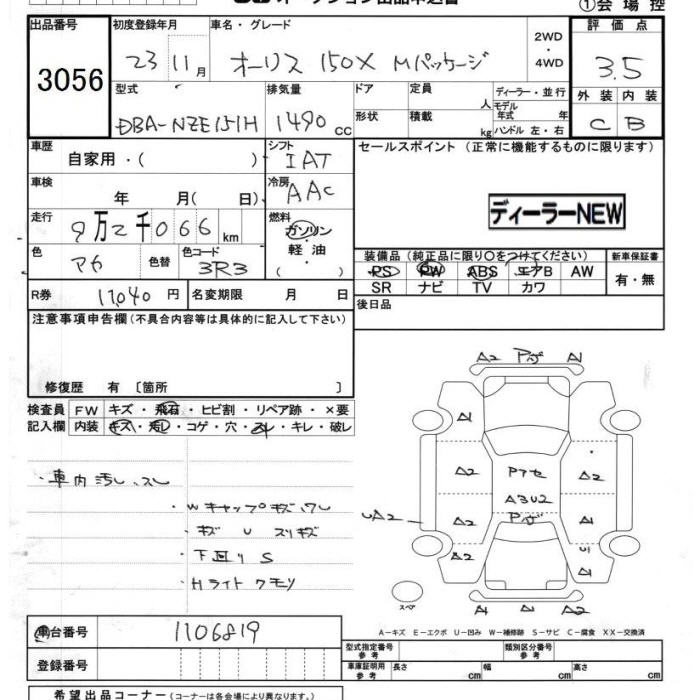 ①会場控
出品番号 3056
初度登録年月 23 11月
車名・グレード オーリス 150X Mパッケージ
2WD・4WD
評価点 3.5
外装 C 内装 B
型式 DBA-NZE151H
排気量 1490 cc
ドア 形状
定員 人
積載 kg
ディーラー・並行
モデル年式 年
ハンドル 左・右
車歴 自家用・( )
シフト IAT
車検 年 月( 日)
冷房 AAC
走行 9万2千066 km
燃料 ガソリン・軽油 ( ・ )
色 アカ 色替
色コード 3R3
セールスポイント (正常に機能するものに限ります)
ディーラーNEW
装備品 (純正品に限り○をつけてください)
PS PW ABS エアB AW
SR ナビ TV カワ
新車保証書 有・無
R券 17,040 円
名変期限 月 日
後日品
注意事項申告欄 (不具合内容等は具体的に記入して下さい)
修復歴 有 〔箇所 〕
検査員記入欄
FW キズ・飛石・ヒビ割・リペア跡・×要
内装 キズ・汚れ・コゲ・穴・スレ・キレ・破レ
・車内汚レ、スレ
・Wキャップキズ、ワレ
・キズ U スリキズ
・下回り S
・Hライトクモリ
A2 A1
A1
A2 Pアセ A2
A3U2
A2 A1
UA2
A2 U1
A1
A1 A1 A2
スペア
A-キズ E-エクボ U-凹み W-補修跡 S-サビ C-腐食 XX-交換済
車台番号 1106819
登録番号
型式指定番号 参考
類別区分番号 参考
車庫証明用 参考 長さ cm 幅 cm 高さ cm
希望出品コーナー (コーナーは各会場により異なります。)